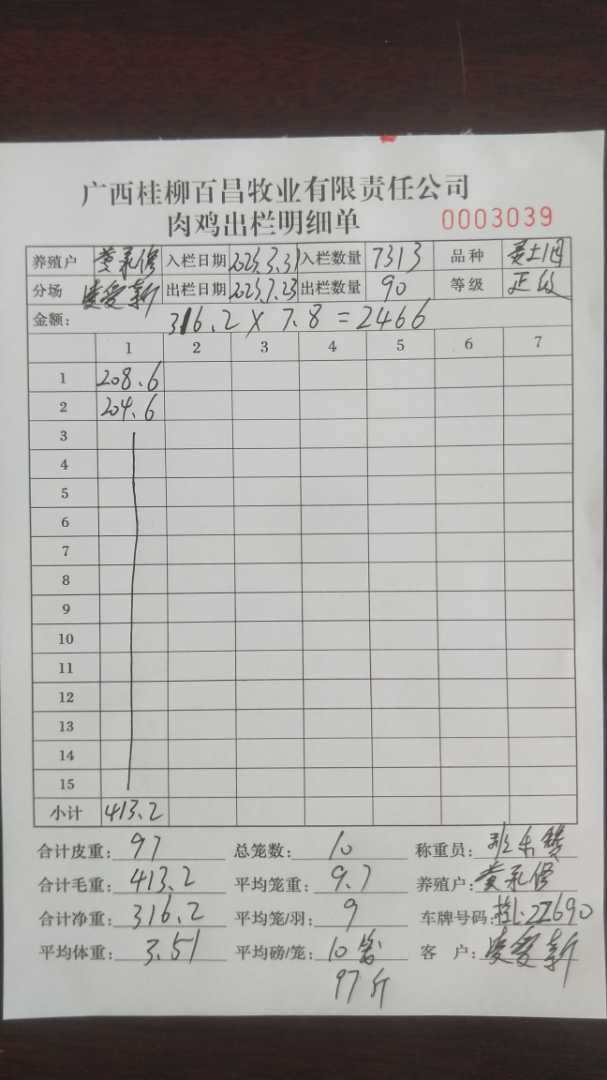 广西桂柳百昌牧业有限责任公司
肉鸡出栏明细单 0003039
养殖户 黄永修 入栏日期 2023.3.31 入栏数量 7313 品种
分场 出栏日期 2023.7.23 出栏数量 90 等级 正品
金额: 316.2 X 7.8 = 2466
1 2 3 4 5 6 7
1 208.6
2 204.6
3
4
5
6
7
8
9
10
11
12
13
14
15
小计 413.2
合计皮重: 97 总笼数: 10 称重员:
合计毛重: 413.2 平均笼重: 9.7 养殖户: 黄永修
合计净重: 316.2 平均笼/羽: 9 车牌号码: 桂L·2Z690
平均体重: 3.51 平均磅/笼: 10 客户:
97斤